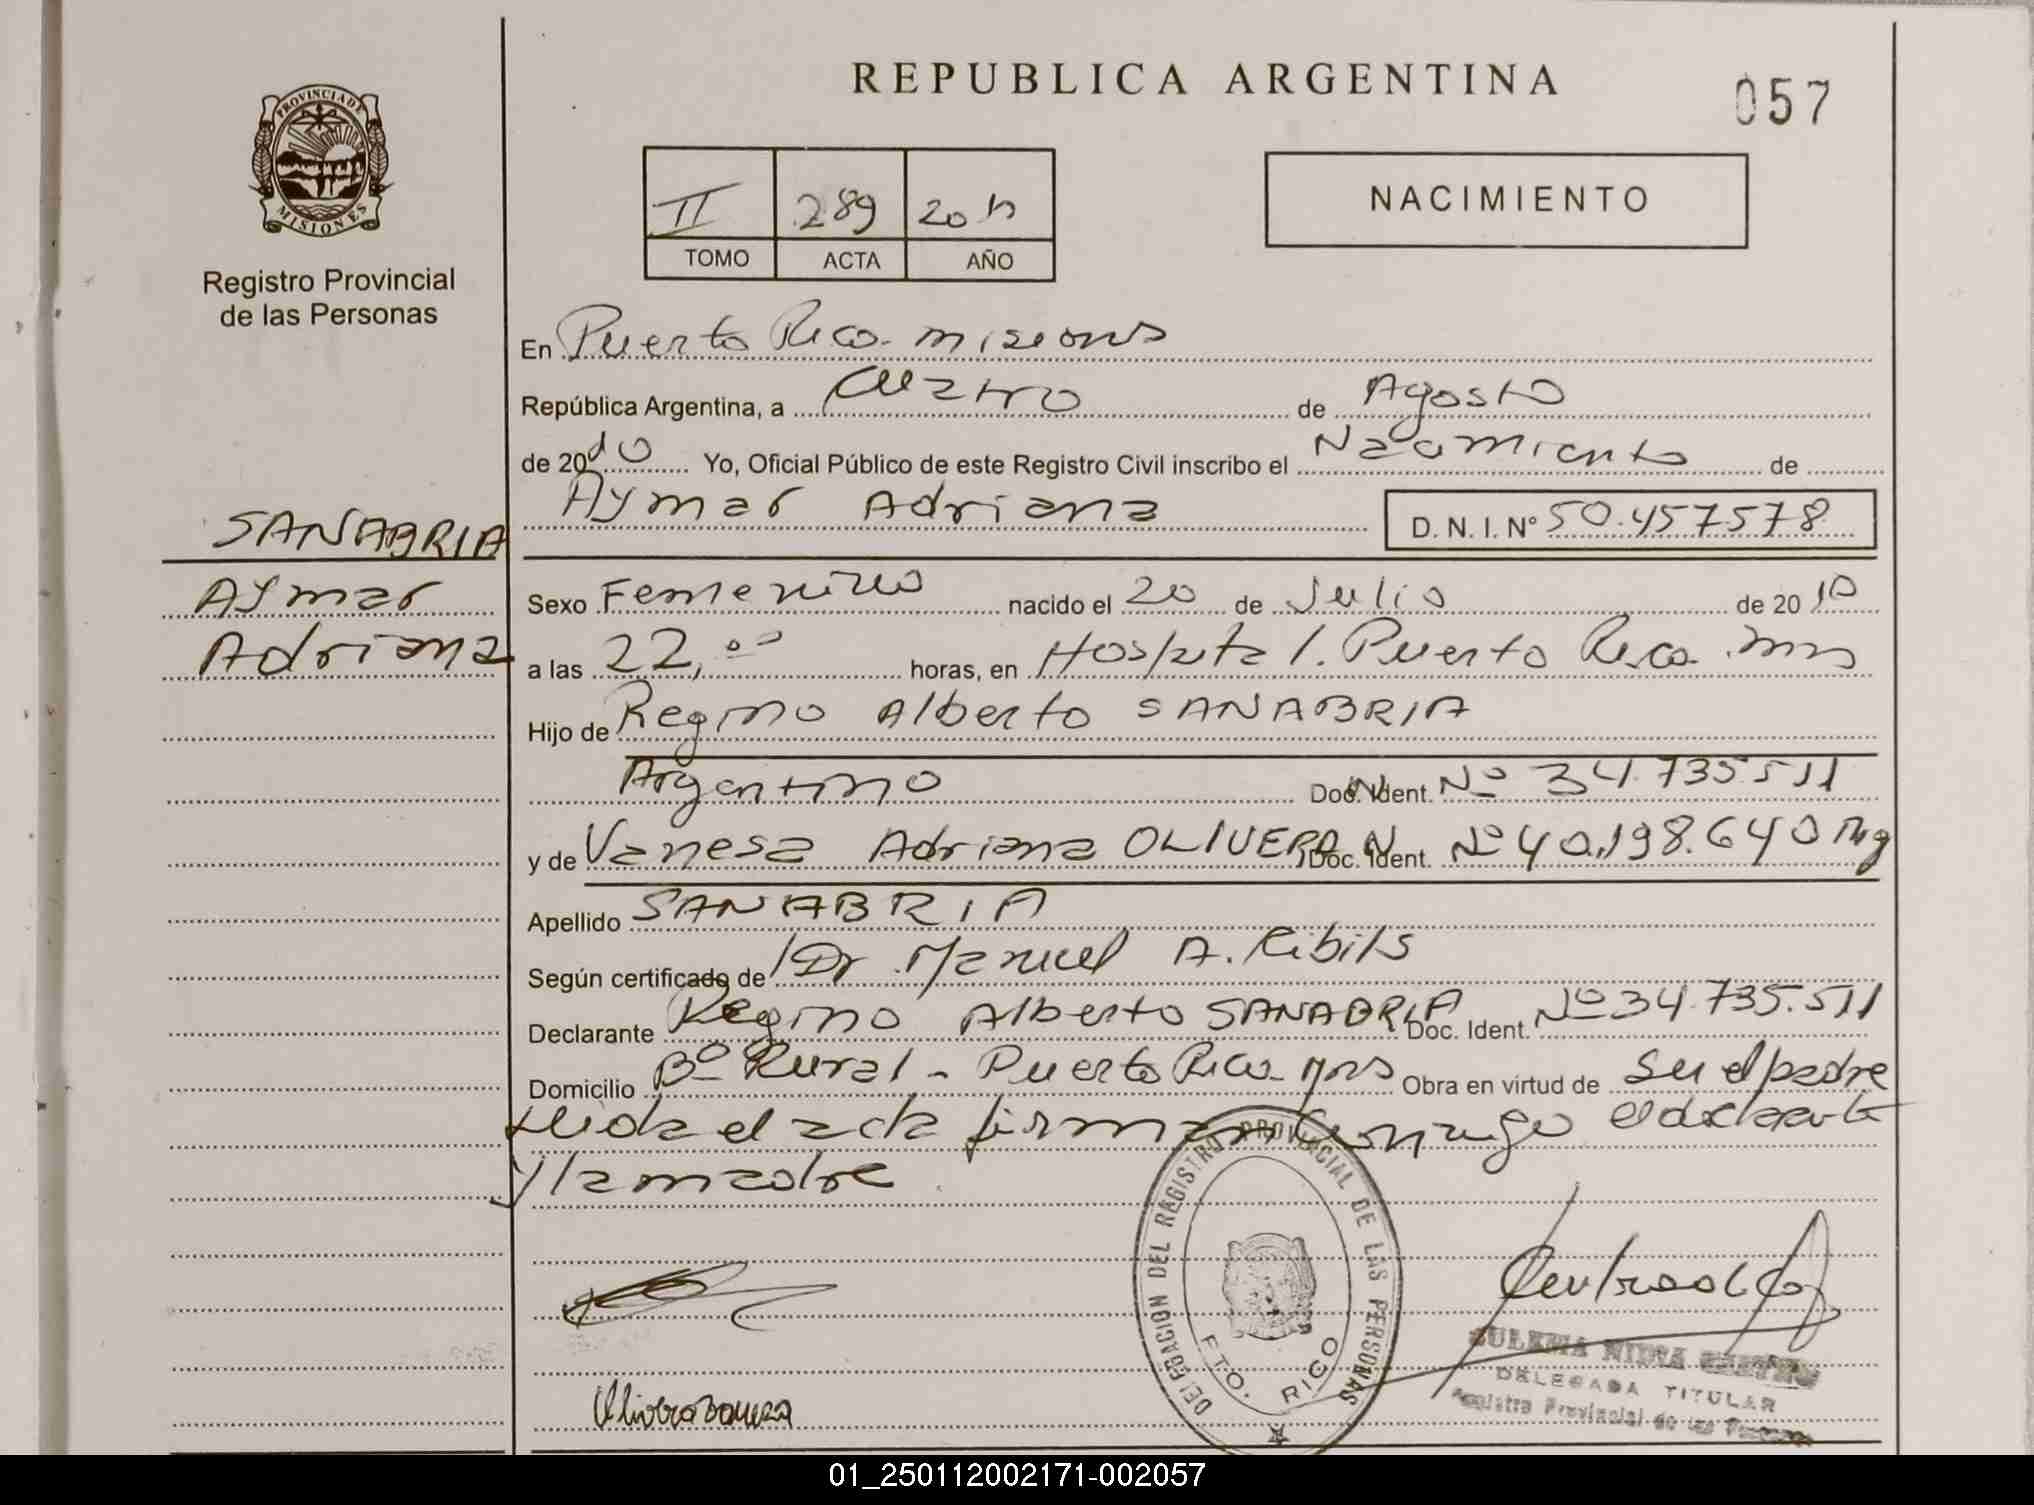 REPUBLICA ARGENTINA
057
PROVINCIA DE
MISIONES
Registro Provincial
de las Personas
II 289 2010
TOMO ACTA AÑO
NACIMIENTO
En Puerto Rico - misiones
República Argentina, a Cuatro de Agosto
de 2010 Yo, Oficial Público de este Registro Civil inscribo el Nacimiento de
Aymar Adriana D. N. I. Nº 50.457578
SANABRIA
Aymar
Adriana
Sexo Femenino nacido el 20 de Julio de 2010
a las 22,00 horas, en Hospital. Puerto Rico. mns
Hijo de Regino Alberto SANABRIA
Argentino Doc. Ident. Nº 34.735511
y de Vanesa Adriana OLIVERA Doc. Ident. Nº 40.198.640 Arg
Apellido SANABRIA
Según certificado de Dr Manuel A. Ribils
Declarante Regino Alberto SANABRIA Doc. Ident. Nº 34.735.511
Domicilio Bº Rural - Puerto Rico - Mns Obra en virtud de Ser el padre
Leida el acta firman Conmigo el declarante
y la madre
DELEGACION DEL REGISTRO PROVINCIAL DE LAS PERSONAS
PTO. RICO
Olivera Vanesa
DELEGADA TITULAR
Registro Provincial de las Personas
01_250112002171-002057